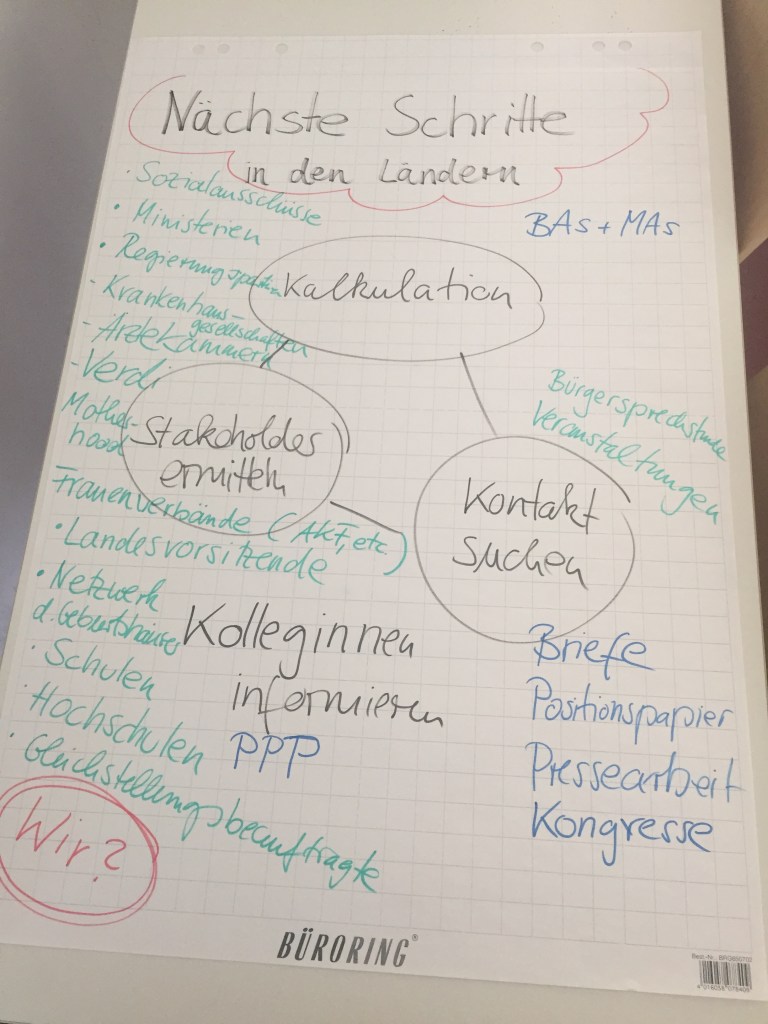 Nächste Schritte
in den Ländern
· Sozialausschüsse
• Ministerien
• Regierungsparteien
- Krankenhaus-
gesellschaften
- Ärztekammern
- Verdi
Mother-
hood
Frauenverbände (AKF, etc.)
• Landesvorsitzende
• Netzwerk
d. Geburtshäuser
· Schulen
· Hochschulen
· Gleichstellungsbeauftragte
Wir?
BAs + MAs
Kalkulation
Stakeholdes
ermitteln
Kontakt
suchen
Bürgersprechstunde
Veranstaltungen
Kolleginnen
informieren
PPP
Briefe
Positionspapier
Pressearbeit
Kongresse
BÜRORING®